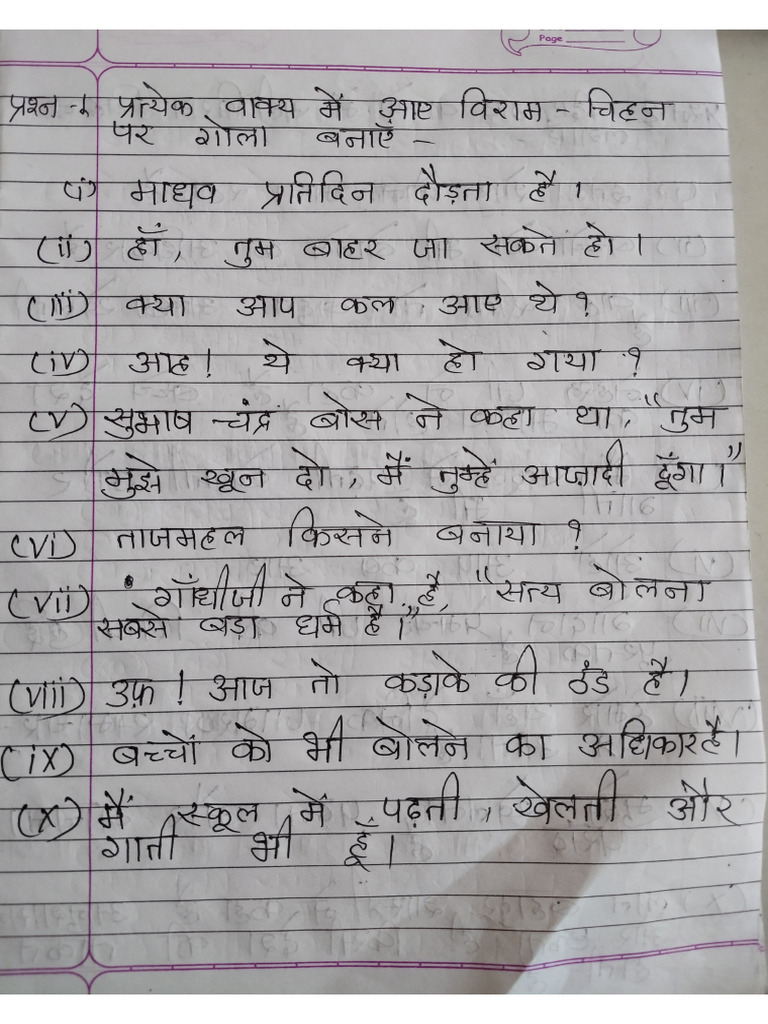 Page
प्रश्न-1 प्रत्येक वाक्य में आए विराम-चिहन
पर गोला बनाएँ -
(i) माधव प्रतिदिन दौड़ता है।
(ii) हाँ, तुम बाहर जा सकते हो।
(iii) क्या आप कल आए थे?
(iv) आह! ये क्या हो गया?
(v) सुभाष चंद्र बोस ने कहा था, "तुम
मुझे खून दो, मैं तुम्हें आज़ादी दूँगा।"
(vi) ताजमहल किसने बनाया?
(vii) गाँधीजी ने कहा है, "सत्य बोलना
सबसे बड़ा धर्म है।"
(viii) उफ़! आज तो कड़ाके की ठंड है।
(ix) बच्चों को भी बोलने का अधिकार है।
(x) मैं स्कूल में पढ़ती, खेलती और
गाती भी हूँ।